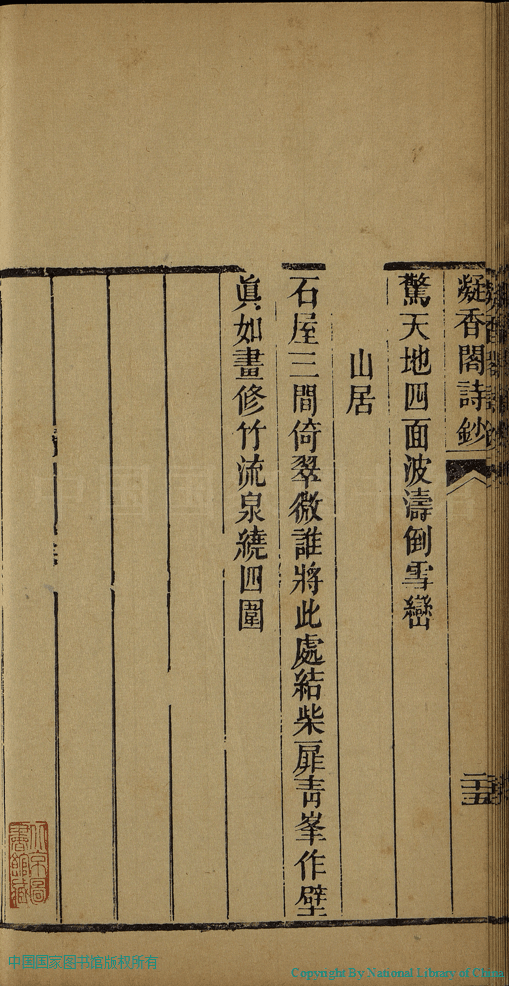 凝香閣詩鈔
二十五
驚天地四面波濤倒雪巒
山居
石屋三間倚翠微誰將此處結柴扉青峯作壁
眞如畫修竹流泉繞四圍
北京圖書館藏
中国国家图书馆
中国国家图书馆版权所有
Copyright By National Library of China